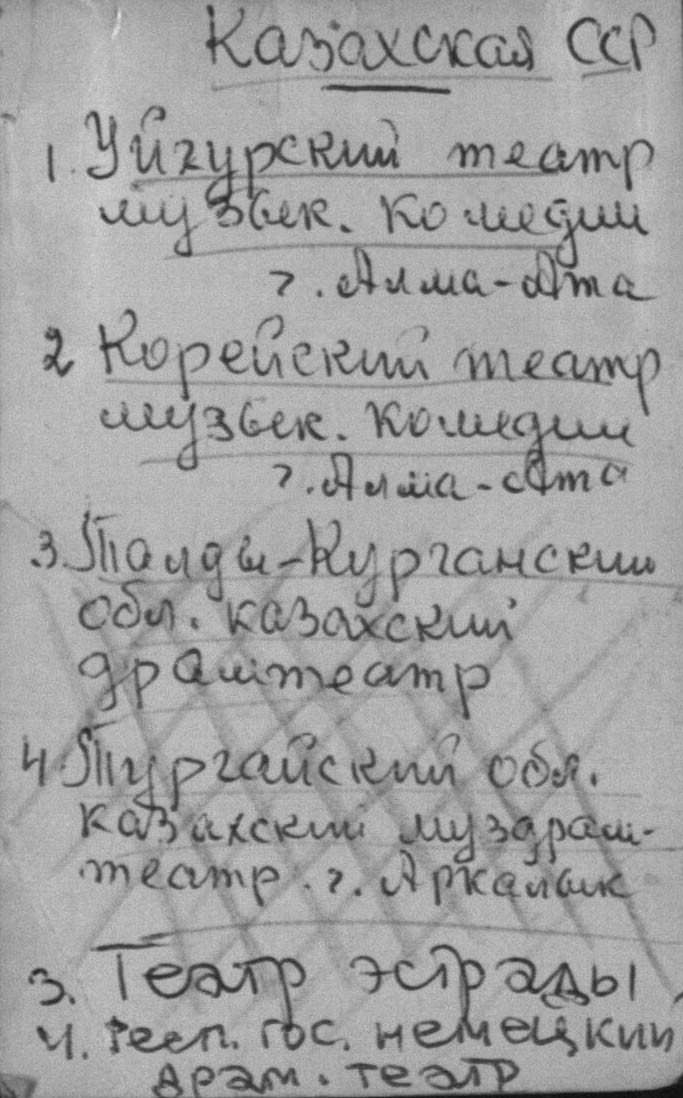 Казахская ССР
1. Уйгурский театр
музвек. комедии
г. Алма-Ата
2 Корейский театр
музвек. комедии
г. Алма-Ата
3. Талды-Курганский
обл. казахский
драмтеатр
4. Тургайский обл.
казахский муздрам-
театр. г. Аркалык
3. Театр эстрады
4. Респ. гос. немецкий
драм. театр